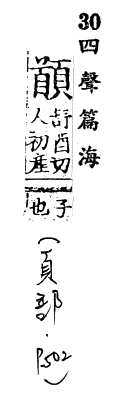 30 四聲篇海
酉切
人初產
子也
(頁部.P502)